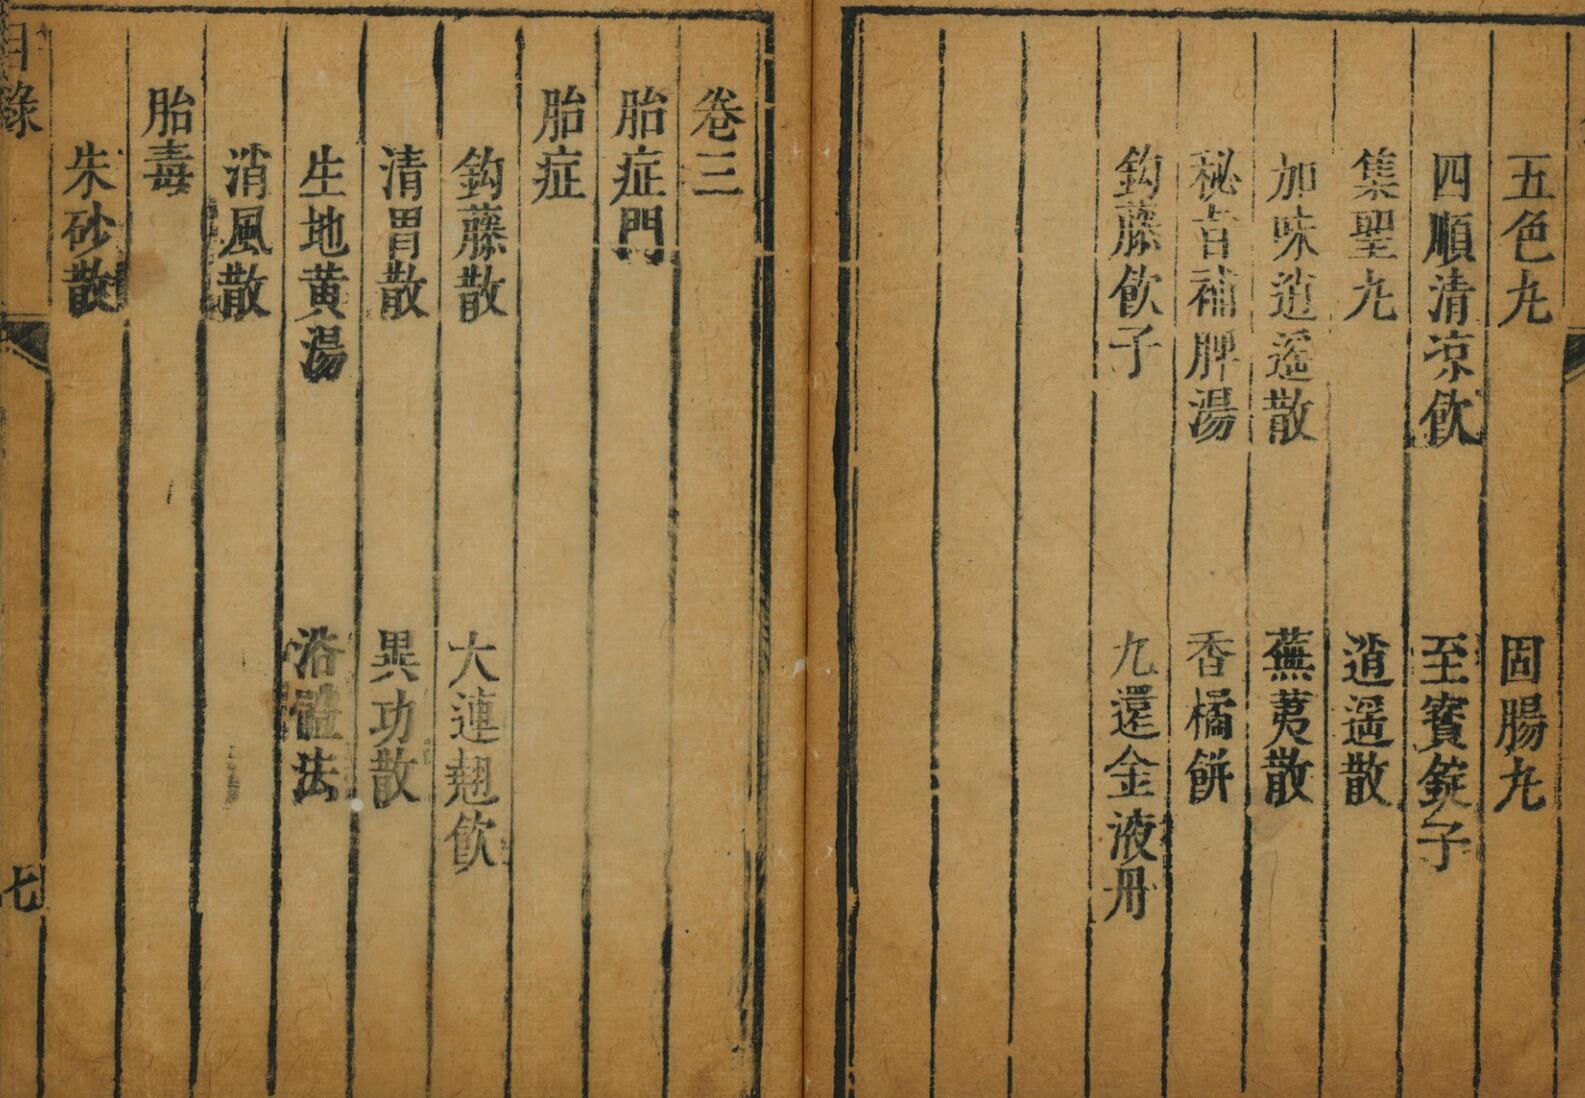 五色丸 固腸丸
四順清凉飲 至寳錠子
集聖丸 逍遥散
加味逍遥散 蕪荑散
秘旨補脾湯 香橘餅
鈎藤飲子 九還金液丹
卷三
胎症門
胎症
鈎藤散 大連翹飲
清胃散 異功散
生地黄湯 浴體法
消風散
胎毒
朱砂散
目錄 七